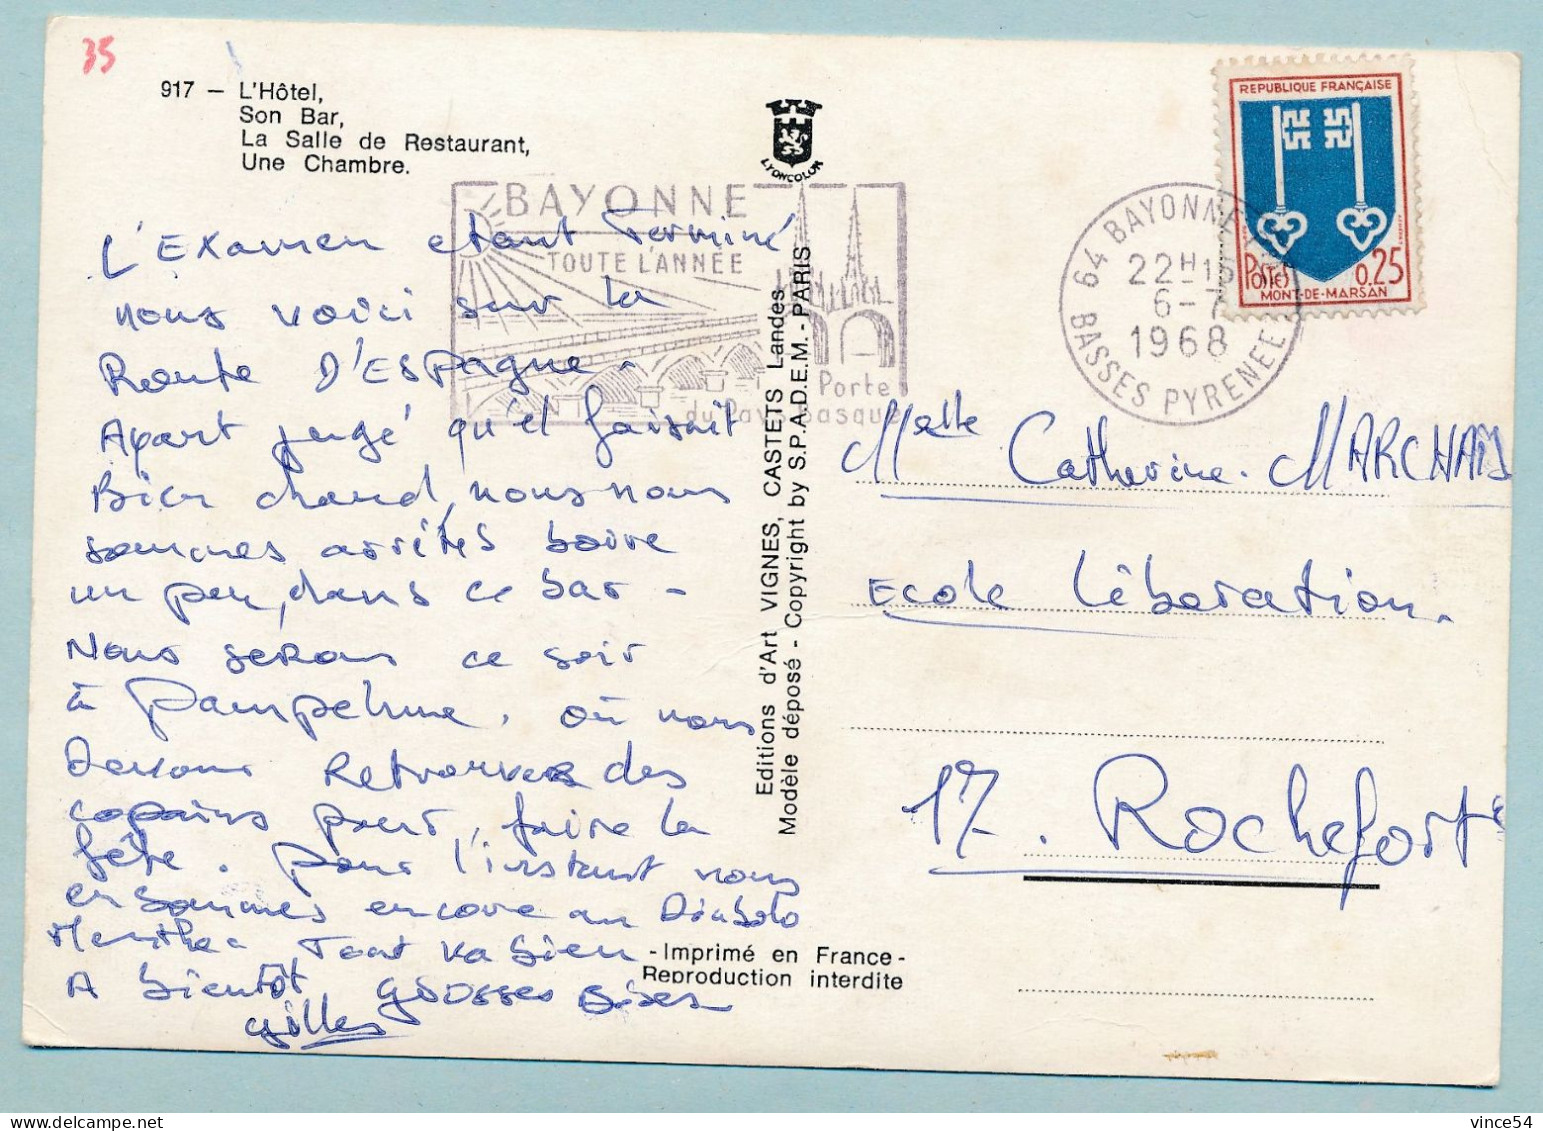 35
917 - L'Hôtel,
Son Bar,
La Salle de Restaurant,
Une Chambre.
LYONCOLOR
REPUBLIQUE FRANÇAISE
POSTES 0,25
MONT-DE-MARSAN
BAYONNE
TOUTE L'ANNÉE
Porte
du Pays Basque
64 BAYONNE
22H15
6-7
1968
BASSES PYRENEES
L'Examen etant Terminé
nous voici sur la
Route D'Espagne -
Ayant jugé qu'il faisait
Bien chaud, nous nous
sommes arrêtés boire
un peu, dans ce bar -
Nous serons ce soir
à Pampelune, où nous
Devons Retrouver des
copains pour, faire la
fête. Pour l'instant nous
en sommes encore au Diabolo
Menthe - Tout va bien
A bientôt grosses Bises
Gilles
Editions d'Art VIGNES, CASTETS Landes
Modèle déposé - Copyright by S.P.A.D.E.M. - PARIS
Melle Catherine MARCHAIS
Ecole Libération.
17. Rochefort
- Imprimé en France -
Reproduction interdite
vince54